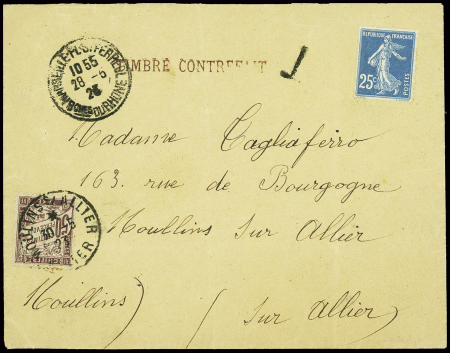 MARSEILLE-PL. ST FERREOL
10 55
28 -5
23
BCHES DU RHONE
TIMBRÉ CONTREFAIT
RÉPUBLIQUE FRANÇAISE
25c
POSTES
Madame Tagliaferro
163. rue de Bourgogne
Moullins sur Allier
MOULINS S/ ALLIER
ALLIER
30 -5
23
50
Moullins) (sur Allier)